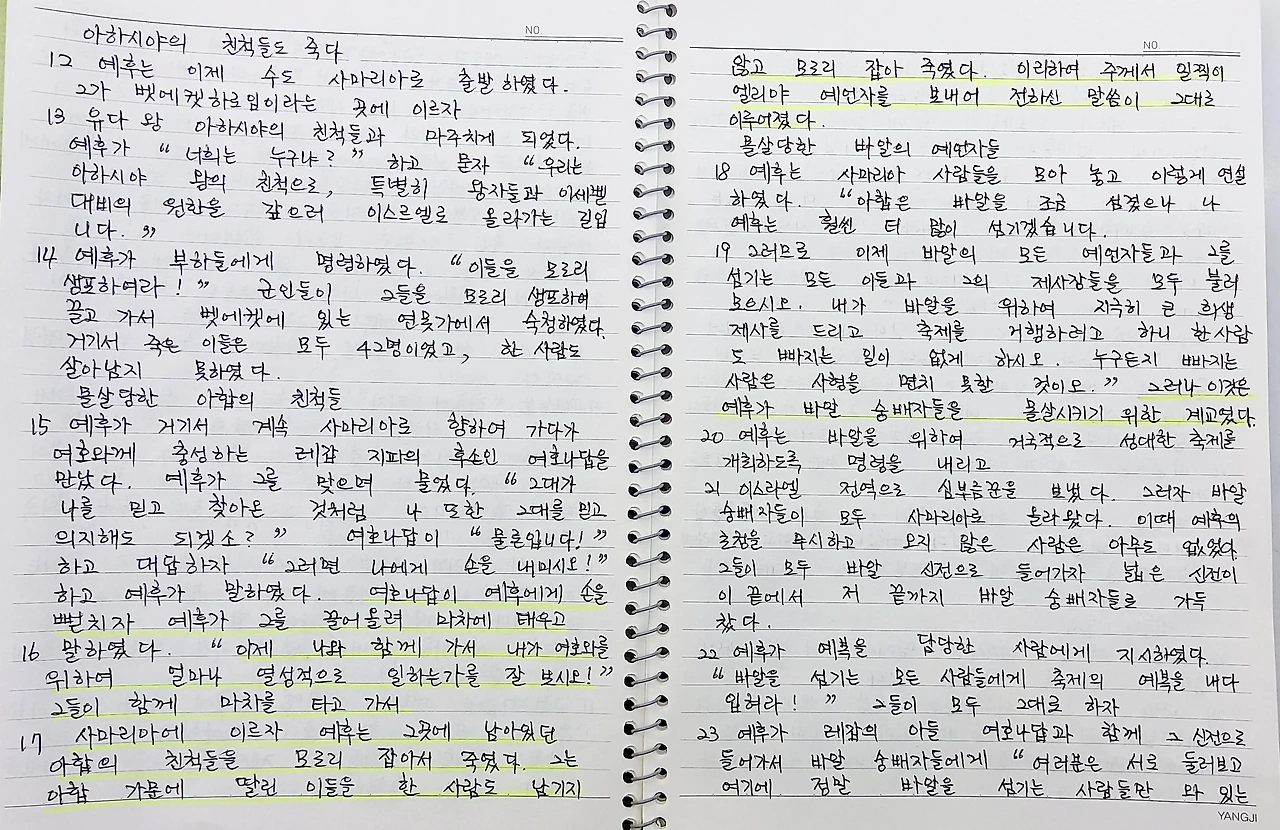 NO.
아하시야의 친척들도 죽다
12 예후는 이제 수도 사마리아로 출발하였다.
그가 벳에켓하로임이라는 곳에 이르자
13 유다 왕 아하시야의 친척들과 마주치게 되었다.
예후가 "너희는 누구냐?" 하고 묻자 "우리는
아하시야 왕의 친척으로, 특별히 왕자들과 이세벨
대비의 원한을 갚으러 이스르엘로 올라가는 길입
니다."
14 예후가 부하들에게 명령하였다. "이들을 모조리
생포하여라!" 군인들이 그들을 모조리 생포하여
끌고 가서 벳에켓에 있는 연못가에서 숙청하였다.
거기서 죽은 이들은 모두 42명이었고, 한 사람도
살아남지 못하였다.
몰살당한 아합의 친척들
15 예후가 거기서 계속 사마리아로 향하여 가다가
여호와께 충성하는 레갑 지파의 후손인 여호나답을
만났다. 예후가 그를 맞으며 물었다. "그대가
나를 믿고 찾아온 것처럼 나 또한 그대를 믿고
의지해도 되겠소?" 여호나답이 "물론입니다!"
하고 대답하자 "그러면 나에게 손을 내미시오!"
하고 예후가 말하였다. 여호나답이 예후에게 손을
뻗치자 예후가 그를 끌어올려 마차에 태우고
16 말하였다. "이제 나와 함께 가서 내가 여호와를
위하여 얼마나 열성적으로 일하는가를 잘 보시오!"
그들이 함께 마차를 타고 가서
17 사마리아에 이르자 예후는 그곳에 남아있던
아합의 친척들을 모조리 잡아서 죽였다. 그는
아합 가문에 딸린 이들을 한 사람도 남기지
NO.
않고 모조리 잡아 죽였다. 이리하여 주께서 일찍이
엘리야 예언자를 보내어 전하신 말씀이 그대로
이루어졌다.
몰살당한 바알의 예언자들
18 예후는 사마리아 사람들을 모아 놓고 이렇게 연설
하였다. "아합은 바알을 조금 섬겼으나 나
예후는 훨씬 더 많이 섬기겠습니다.
19 그러므로 이제 바알의 모든 예언자들과 그를
섬기는 모든 이들과 그의 제사장들을 모두 불러
모으시오. 내가 바알을 위하여 지극히 큰 희생
제사를 드리고 축제를 거행하려고 하니 한 사람
도 빠지는 일이 없게 하시오. 누구든지 빠지는
사람은 사형을 면치 못할 것이오." 그러나 이것은
예후가 바알 숭배자들을 몰살시키기 위한 계교였다.
20 예후는 바알을 위하여 거국적으로 성대한 축제를
개최하도록 명령을 내리고
21 이스라엘 전역으로 심부름꾼을 보냈다. 그러자 바알
숭배자들이 모두 사마리아로 올라왔다. 이때 예후의
초청을 무시하고 오지 않은 사람은 아무도 없었다
그들이 모두 바알 신전으로 들어가자 넓은 신전이
이 끝에서 저 끝까지 바알 숭배자들로 가득
찼다.
22 예후가 예복을 담당한 사람에게 지시하였다.
"바알을 섬기는 모든 사람들에게 축제의 예복을 내다
입혀라!" 그들이 모두 그대로 하자
23 예후가 레갑의 아들 여호나답과 함께 그 신전으로
들어가서 바알 숭배자들에게 "여러분은 서로 둘러보고
여기에 정말 바알을 섬기는 사람들만 와 있는
YANGJI